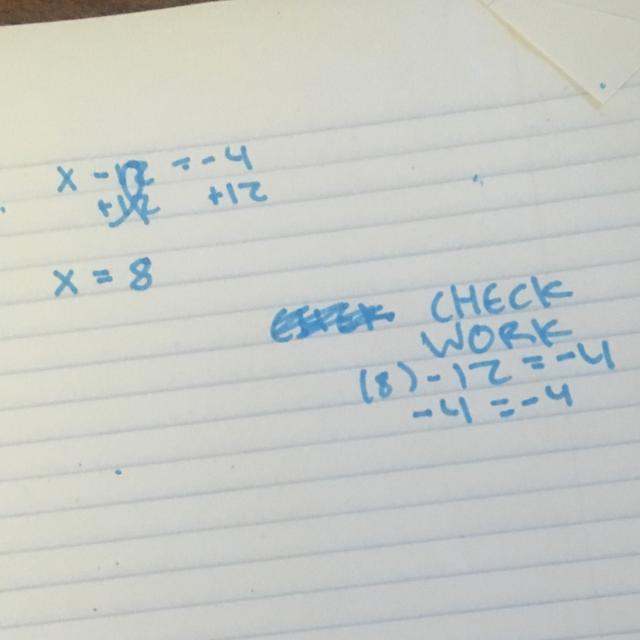 x - 12 = -4
+12 +12
x = 8
CHECK
WORK
(8) - 12 = -4
-4 = -4